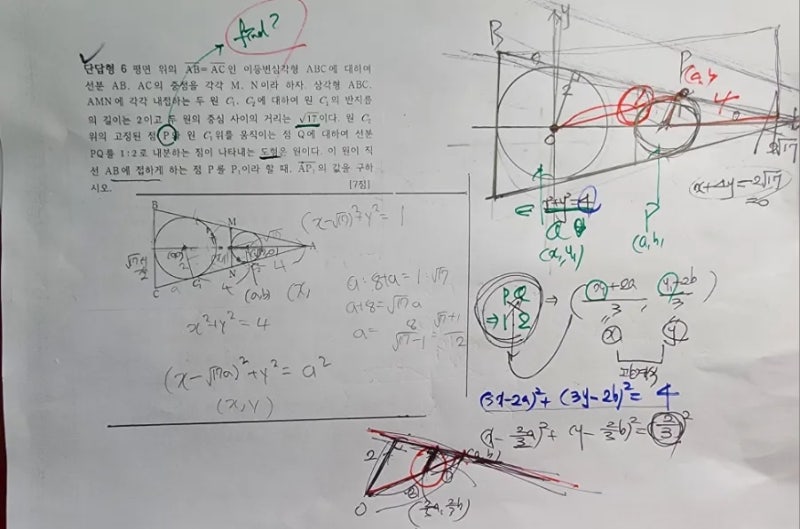 find?
단답형 6 평면 위의 AB=AC인 이등변삼각형 ABC에 대하여
선분 AB, AC의 중점을 각각 M, N이라 하자. 삼각형 ABC,
AMN에 각각 내접하는 두 원 C₁, C₂에 대하여 원 C₁의 반지름
의 길이는 2이고 두 원의 중심 사이의 거리는 √17이다. 원 C₂
위의 고정된 점 P와 원 C₁위를 움직이는 점 Q에 대하여 선분
PQ를 1:2로 내분하는 점이 나타내는 도형은 원이다. 이 원이 직
선 AB에 접하게 하는 점 P를 P₁이라 할 때, AP₁의 값을 구하
시오. [7점]
B
M
N
A
C
(x-√17)²+y²=1
(a,b)
4
x²+y²=4
a:8+a=1:√17
a+8=√17a
(x-√17a)²+y²=a²
(x,y)
B
y
2
P
(a,b
4
2√17
x+4y=2√17
=0
x²+y²=4
Q
(x₁,y₁)
P
(a,b)
PQ
⇒ 1 2
⇒ (x₁+2a/3, y₁+2b/3)
x
y
(3x-2a)²+(3y-2b)²=4
(x-2/3a)²+(y-2/3b)²=(2/3)²
2
O
(2/3a, 2/3b)